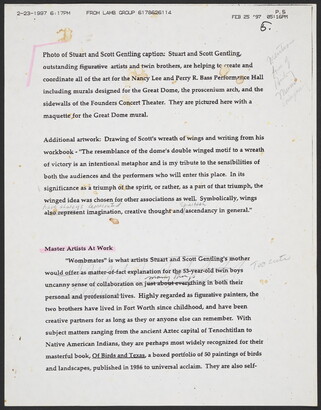 2-23-1997 6:17PM FROM LAMS GROUP 6176626114 P.5
FEB 25 '97 05:16PM
5.
Photo of Stuart and Scott Gentling caption: Stuart and Scott Gentling,
outstanding figurative artists and twin brothers, are helping to create and
coordinate all of the art for the Nancy Lee and Perry R. Bass Performance Hall
including murals designed for the Great Dome, the proscenium arch, and the
sidewalls of the Founders Concert Theater. They are pictured here with a
maquette for the Great Dome mural.
Additional artwork: Drawing of Scott's wreath of wings and writing from his
workbook - "The resemblance of the dome's double winged motif to a wreath
of victory is an intentional metaphor and is my tribute to the sensibilities of
both the audiences and the performers who will enter this place. In its
significance as a triumph of the spirit, or rather, as a part of that triumph, the
winged idea was chosen for other associations as well. Symbolically, wings
also represent imagination, creative thought and ascendancy in general."
Master Artists At Work
"Wombmates" is what artists Stuart and Scott Gentling's mother
would offer as matter-of-fact explanation for the 53-year-old twin boys
many things
uncanny sense of collaboration on just about everything in both their
personal and professional lives. Highly regarded as figurative painters, the
two brothers have lived in Fort Worth since childhood, and have been
creative partners for as long as they or anyone else can remember. With
subject matters ranging from the ancient Aztec capital of Tenochtitlan to
Native American Indians, they are perhaps most widely recognized for their
masterful book, Of Birds and Texas, a boxed portfolio of 50 paintings of birds
and landscapes, published in 1986 to universal acclaim. They are also self-